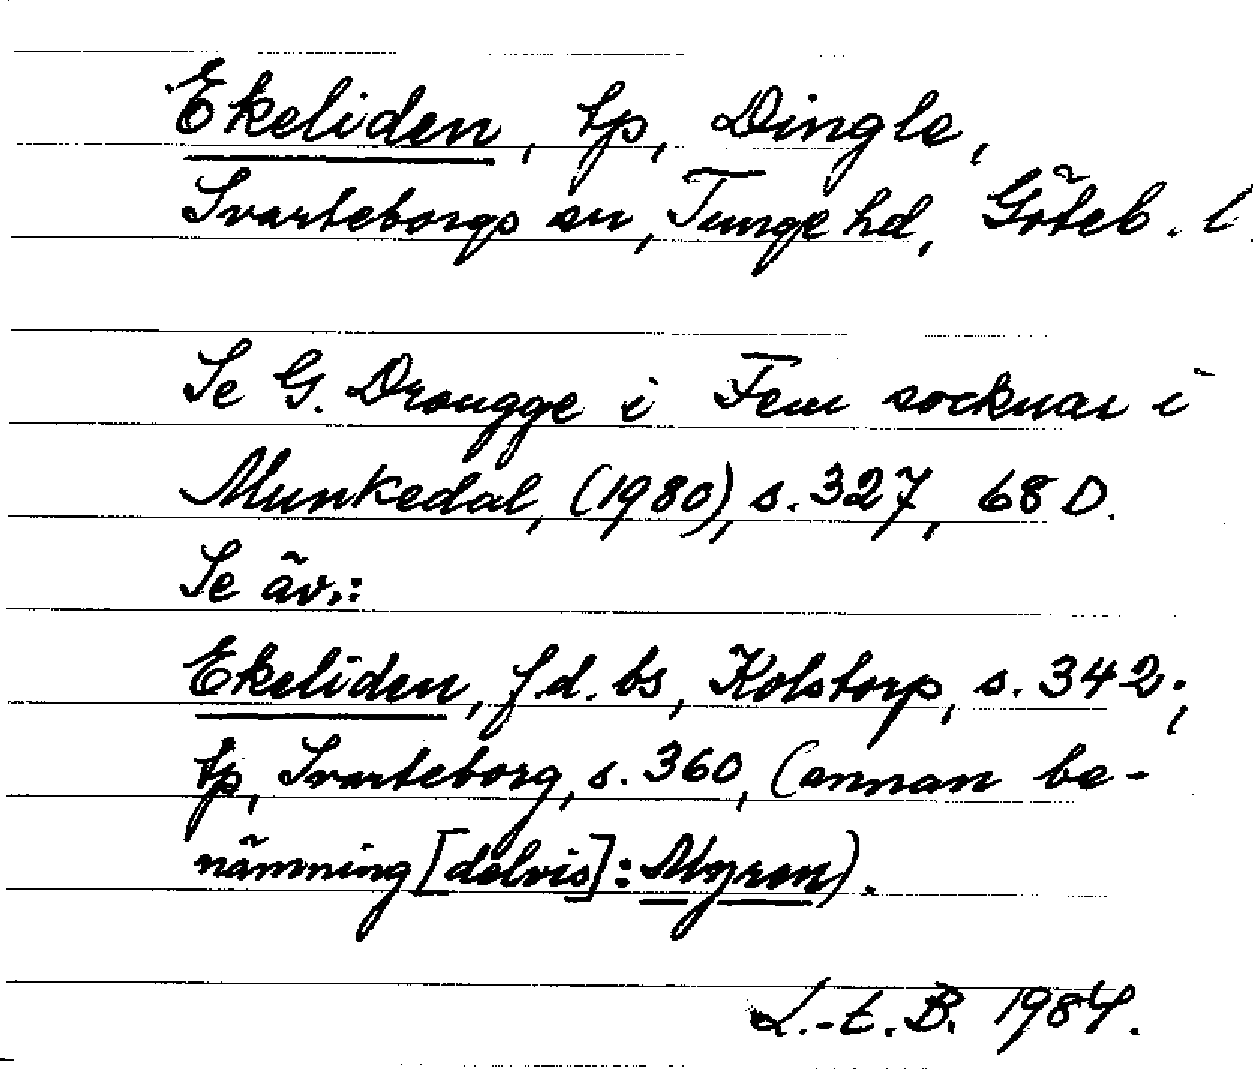 Ekeliden, tp, Dingle,
Svarteborgs sn, Tunge hd, Göteb. l.
Se G. Drougge i Fem socknar i
Munkedal, (1980), s. 327, 68 D.
Se äv.:
Ekeliden, f.d. bs, Kolstorp, s. 342;
tp, Svarteborg, s. 360, (annan be-
nämning [delvis]: Myren).
L.-E. B. 1984.